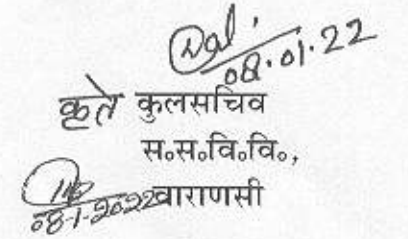 08.01.22
कृते कुलसचिव
स०स०वि०वि०,
08-1-2022 वाराणसी